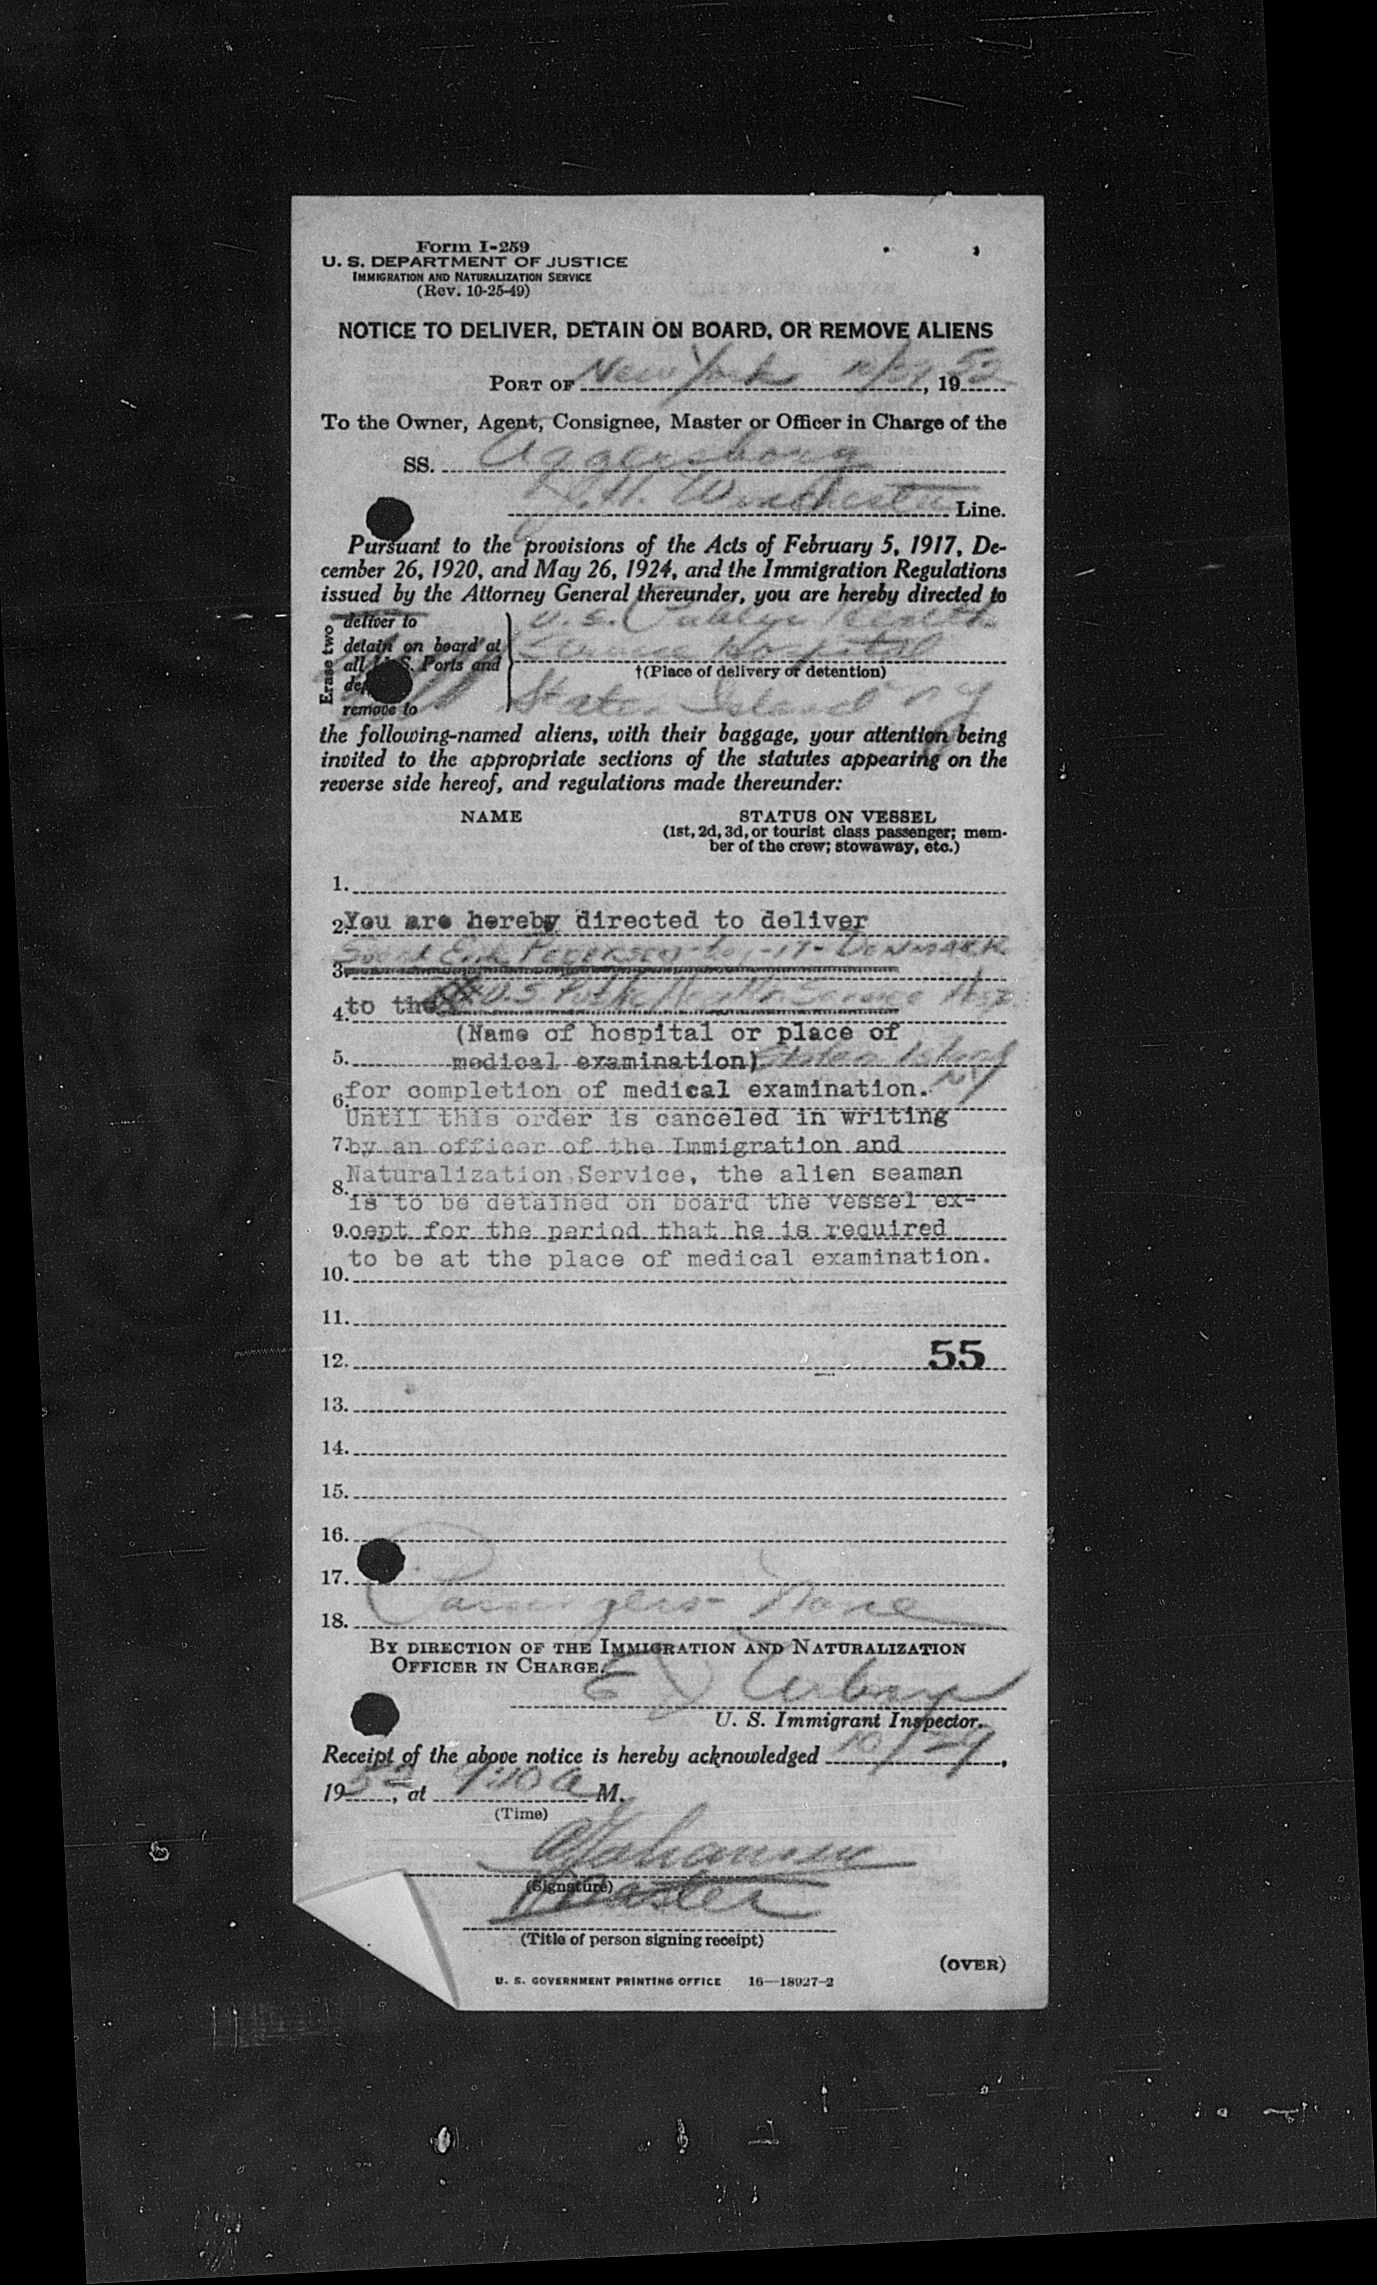 Form I-259
U. S. DEPARTMENT OF JUSTICE
IMMIGRATION AND NATURALIZATION SERVICE
(Rev. 10-25-49)
NOTICE TO DELIVER, DETAIN ON BOARD, OR REMOVE ALIENS
PORT OF New York 10/29, 1952
To the Owner, Agent, Consignee, Master or Officer in Charge of the
SS. Aggersborg
H. Winchester Line.
Pursuant to the provisions of the Acts of February 5, 1917, De-
cember 26, 1920, and May 26, 1924, and the Immigration Regulations
issued by the Attorney General thereunder, you are hereby directed to
Erase two
deliver to
detain on board at
all U.S. Ports and
remove to
U.S. Public Health
Service Hospital
†(Place of delivery or detention)
Staten Island NY
the following-named aliens, with their baggage, your attention being
invited to the appropriate sections of the statutes appearing on the
reverse side hereof, and regulations made thereunder:
NAME STATUS ON VESSEL
(1st, 2d, 3d, or tourist class passenger; mem-
ber of the crew; stowaway, etc.)
1.
2. You are hereby directed to deliver
Svend Erik Pedersen - boy - 17 - DENMARK
3.
4. to the U.S. Public Health Service Hosp
(Name of hospital or place of
5. medical examination) Staten Island
6. for completion of medical examination. NY
Until this order is canceled in writing
7. by an officer of the Immigration and
Naturalization Service, the alien seaman
8. is to be detained on board the vessel ex-
9. cept for the period that he is required
to be at the place of medical examination.
10.
11.
12. 55
13.
14.
15.
16.
17.
Passengers - None
18.
BY DIRECTION OF THE IMMIGRATION AND NATURALIZATION
OFFICER IN CHARGE.
E J Urban
U. S. Immigrant Inspector.
Receipt of the above notice is hereby acknowledged 10/29,
1952, at 9:10 A M.
(Time)
Johansen
(Signature)
Master
(Title of person signing receipt)
(OVER)
U. S. GOVERNMENT PRINTING OFFICE 16—18927-2